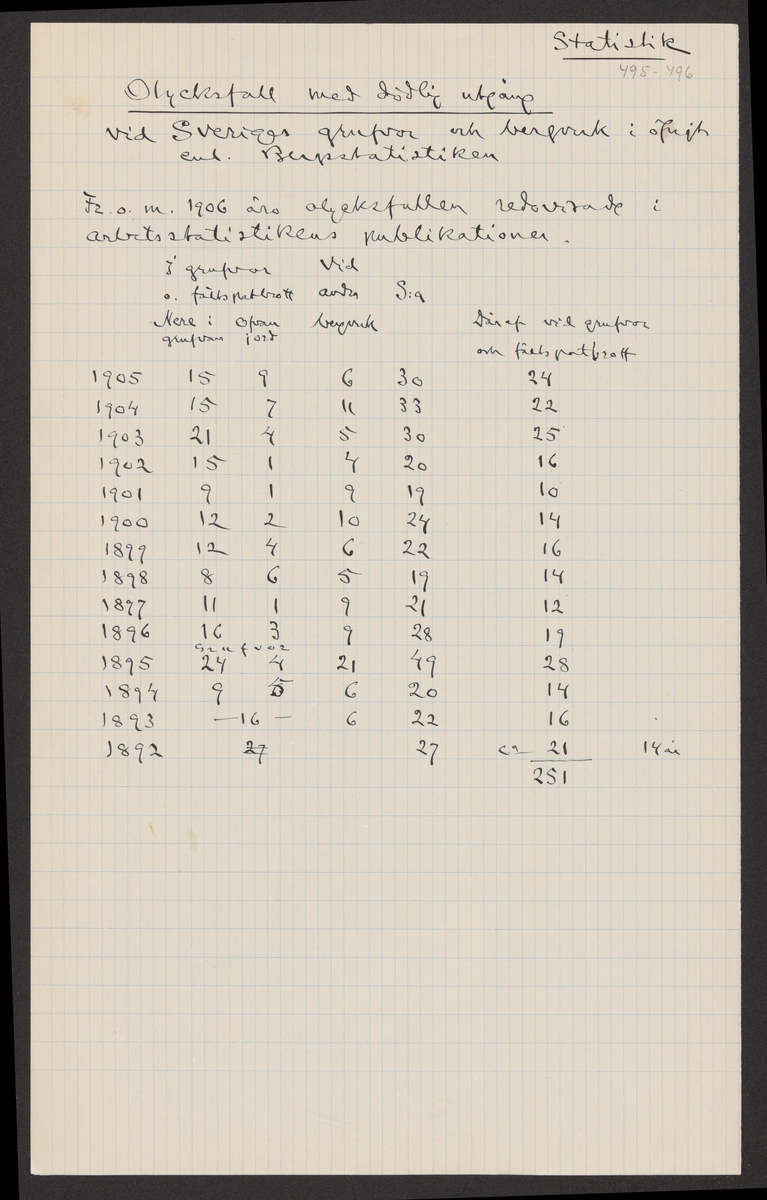 Statistik
495-496
Olycksfall med dödlig utgång
vid Sveriges grufvor och bergvrk i öfrigt
enl. Bergsstatistiken
Fr. o. m. 1906 äro olycksfallen redovisade i
arbetsstatistikens publikationer.
I grufvor Vid
o. fältspatbrott andra S:a
Nere i Ofvan bergvrk Däraf vid grufvor
grufvan jord
och fältspatbrott
1905 15 9 6 30 24
1904 15 7 11 33 22
1903 21 4 5 30 25
1902 15 1 4 20 16
1901 9 1 9 19 10
1900 12 2 10 24 14
1899 12 4 6 22 16
1898 8 6 5 19 14
1897 11 1 9 21 12
1896 16 3 9 28 19
Grufvor
1895 24 4 21 49 28
1894 9 5 6 20 14
1893 —16— 6 22 16
1892 27 27 ca 21 14 år
251